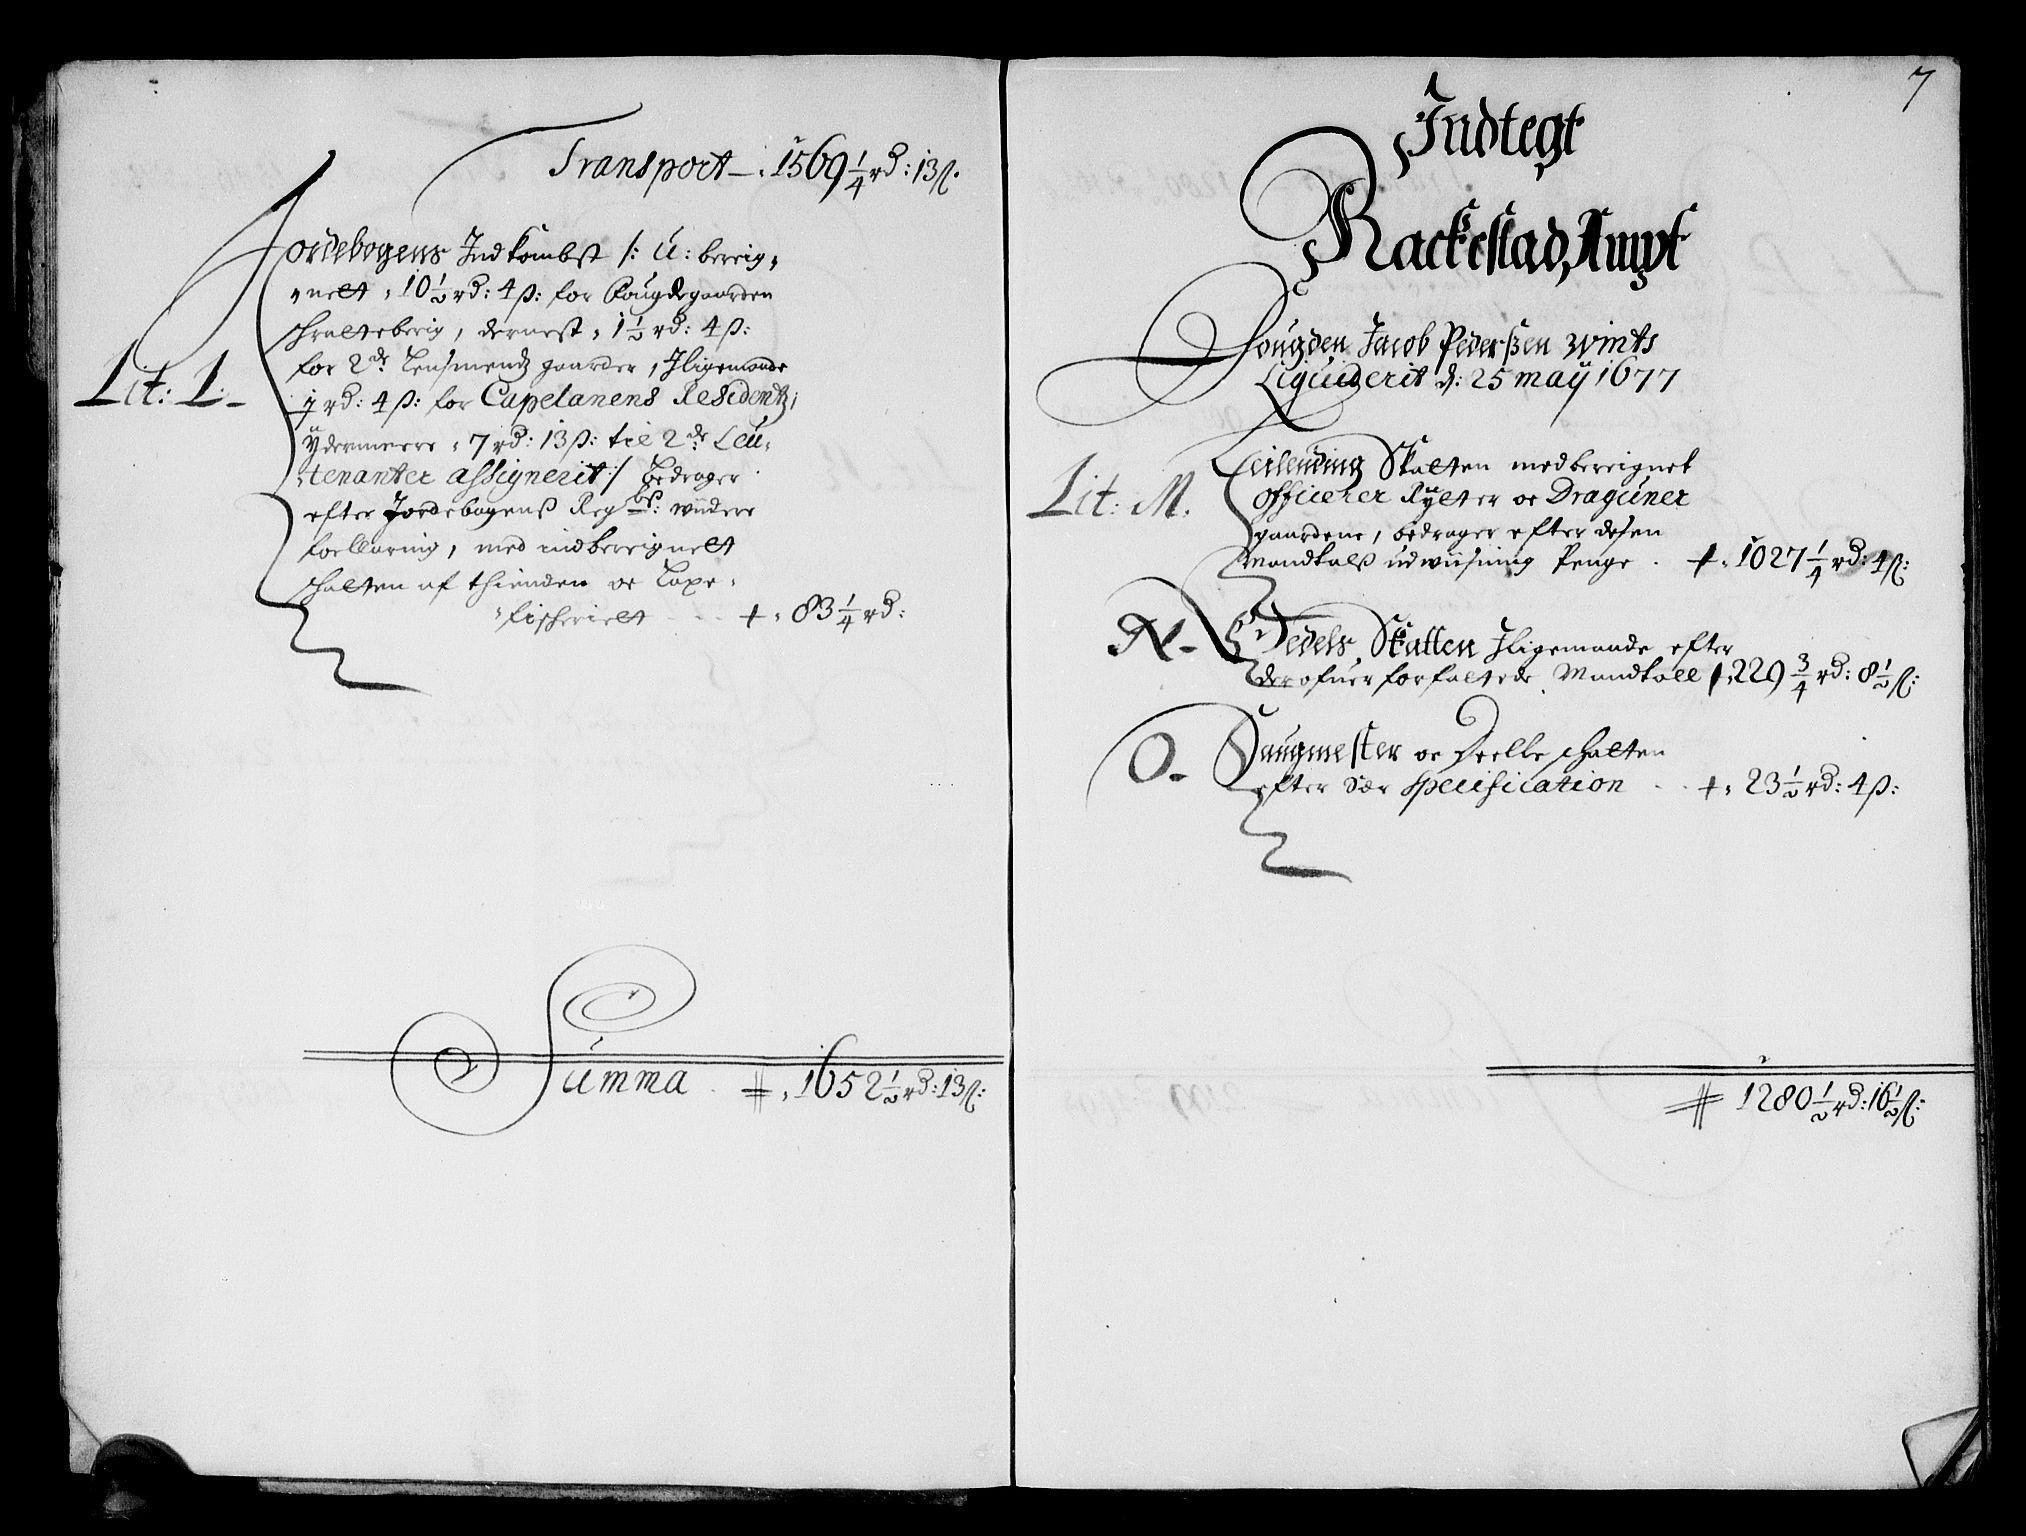 Transport - 1569 1/4 rd: 13 ß.
Lit: L.
Jordebogens Indkombst /: U: bereig,
,nett, 10 1/2 rd: 4 ß: for Fougdegaarden
schratteberig, dernest, 1 1/2 rd: 4 ß:
for 2de Lensmendz gaarder, Iligemaade
rd: 4 ß: for Capelanens Residentz,
ydermeere, 7 rd: 13 ß: til 2de Leu,
,tenanter assignerit :/ bedrager
efter Jordebogens Regbß: widere
forklaring, med indbereignett
schatten af thienden oc Laxe,
,fischeriett . . . +, 83 1/4 rd:
Summa . #, 1652 1/2 rd: 13 ß:
7
Indtegt
Rackestad, Ampt
Fougden Jacob Pederßen wints
Liquiderit d: 25 may 1677
Lit: M.
Leilending Skatten medbereignet
officerer Rytter oc Draguner
gaardene, bedrager efter desen
Mandtals udwiisning Penge . +, 1027 1/4 rd: 4 ß:
N-
Oedels Skatten Iligemaade efter
der ofuer forfattede Mandtall +, 229 3/4 rd: 8 1/2 ß:
O-
Saugmester oc Deelle schatten
efter Sær specification . . +, 23 1/2 rd: 4 ß:
# 1280 1/2 rd: 16 1/2 ß: